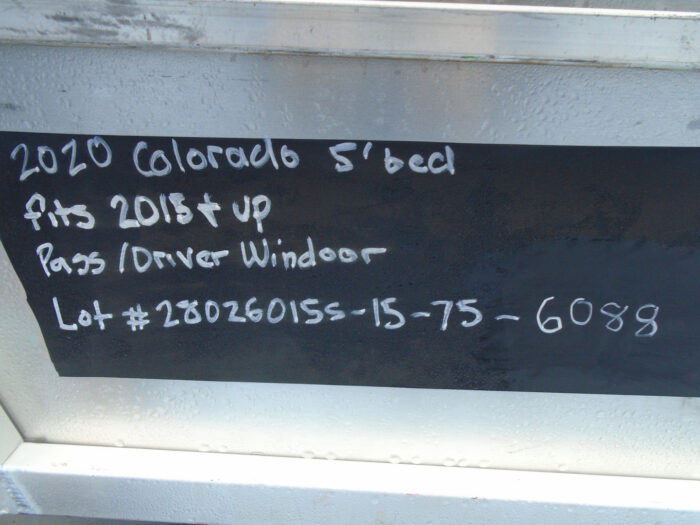 2020 Colorado 5' bed
fits 2015+ up
Pass/Driver Windoor
Lot #28026015s-15-75-6088